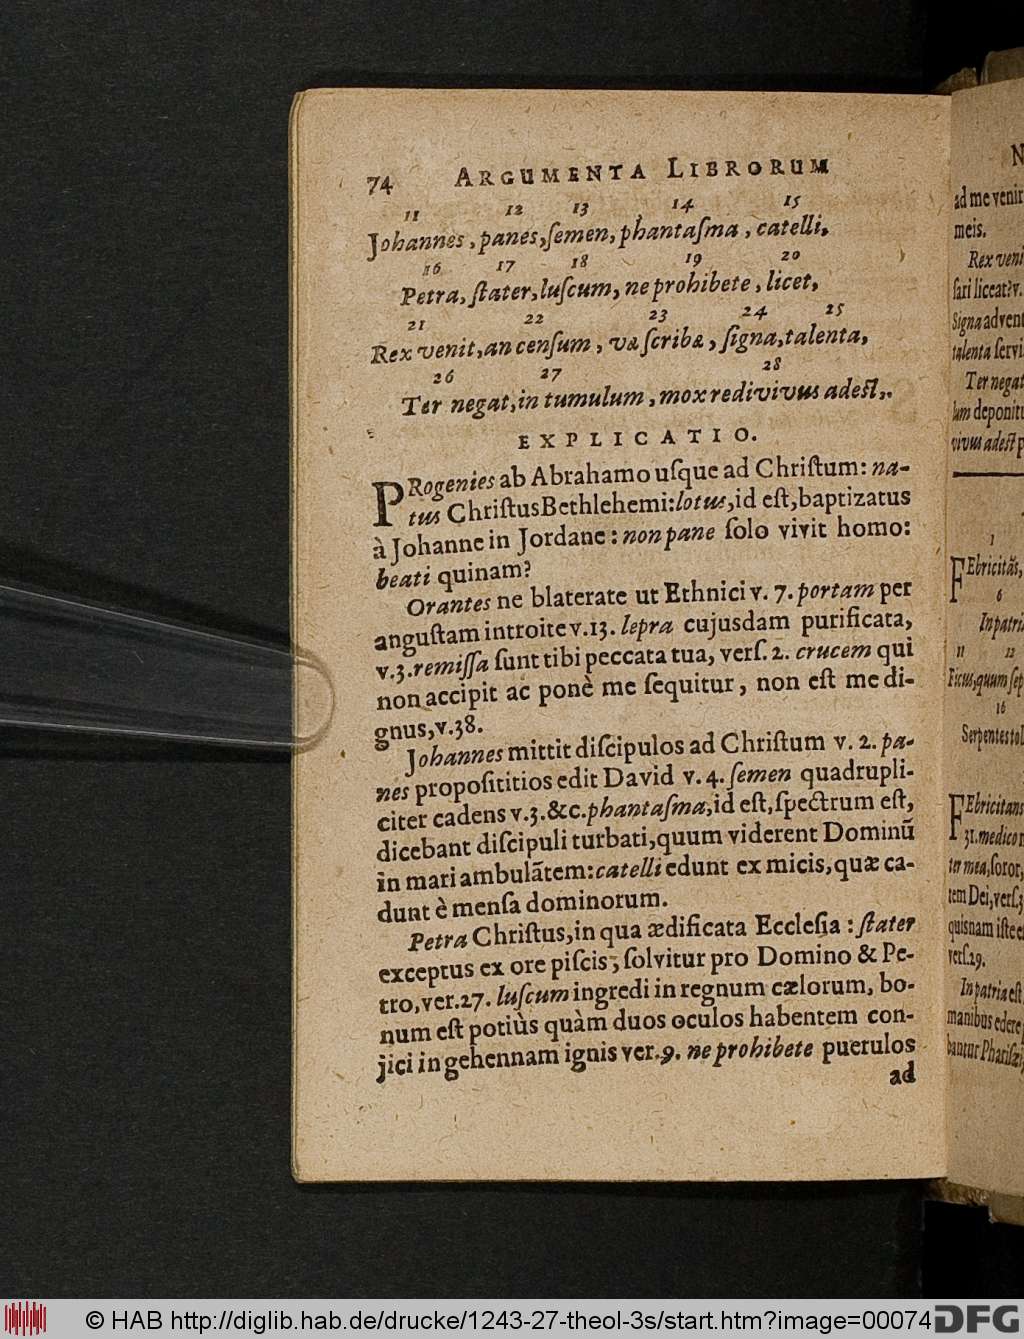 74 ARGUMENTA LIBRORUM
11 12 13 14 15
Johannes, panes, ſemen, phantaſma, catelli,
16 17 18 19 20
Petra, ſtater, luſcum, ne prohibete, licet,
21 22 23 24 25
Rex venit, an cenſum, væ ſcribæ, ſigna, talenta,
26 27 28
Ter negat, in tumulum, mox redivivus adeſt,.
EXPLICATIO.
PRogenies ab Abrahamo uſque ad Chriſtum: na-
tus Chriſtus Bethlehemi: lotus, id eſt, baptizatus
à Johanne in Jordane: non pane ſolo vivit homo:
beati quinam?
Orantes ne blaterate ut Ethnici v. 7. portam per
anguſtam introite v.13. lepra cujusdam purificata,
v.3. remiſſa ſunt tibi peccata tua, verſ. 2. crucem qui
non accipit ac ponè me ſequitur, non eſt me di-
gnus, v.38.
Johannes mittit diſcipulos ad Chriſtum v. 2. pa-
nes propoſititios edit David v. 4. ſemen quadrupli-
citer cadens v.3.&c. phantaſma, id eſt, ſpectrum eſt,
dicebant diſcipuli turbati, quum viderent Dominũ
in mari ambulãtem: catelli edunt ex micis, quæ ca-
dunt è menſa dominorum.
Petra Chriſtus, in qua ædificata Eccleſia: ſtater
exceptus ex ore piſcis, ſolvitur pro Domino & Pe-
tro, ver.27. luſcum ingredi in regnum cælorum, bo-
num eſt potiùs quàm duos oculos habentem con-
jici in gehennam ignis ver.9. ne prohibete puerulos
ad
N
ad me venir
meis.
Rex veni
ſari liceat? v.
Signa advent
talenta ſervi
Ter negat
lum deponitu
vivus adeſt p
1
FEbricitãs,
6
In patria
11 12
Ficus, quum ſep
16
Serpentes tol
FEbricitans
31. medico n
ter mea, ſoror,
tem Dei, verſ.3
quisnam iſte e
verſ.29.
In patria eſt
manibus edere
bantur Phariſæi
© HAB http://diglib.hab.de/drucke/1243-27-theol-3s/start.htm?image=00074 DFG